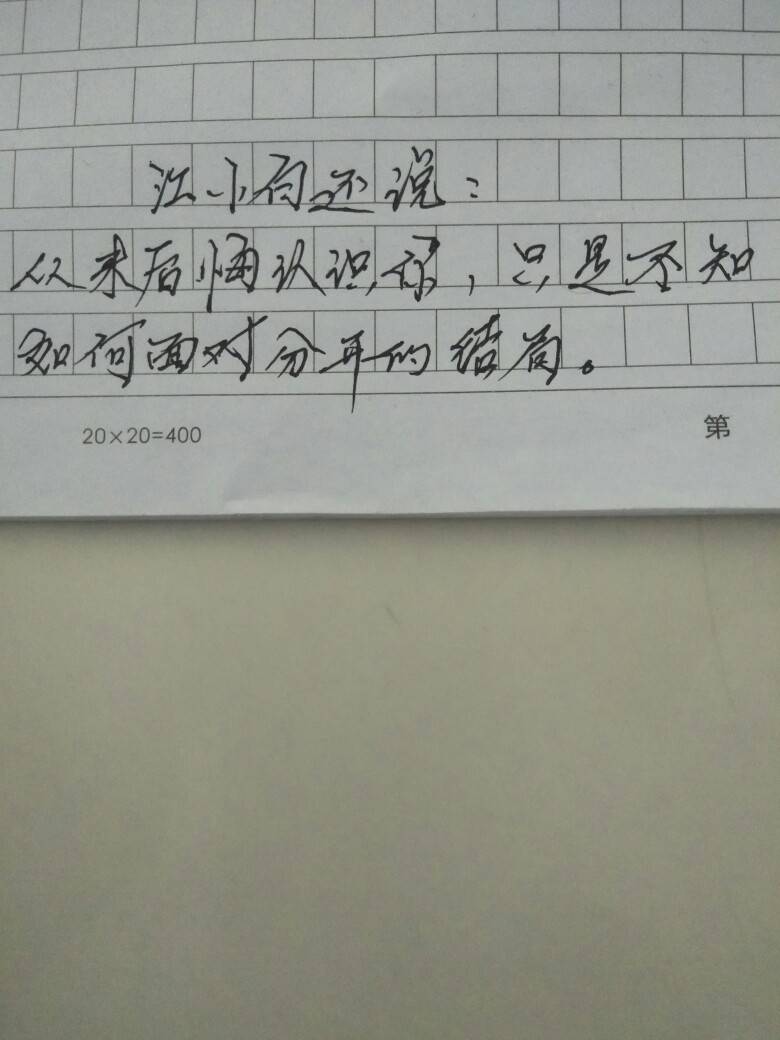 江小白还说：
从未后悔认识你，只是不知
如何面对分开的结局。
20×20=400
第